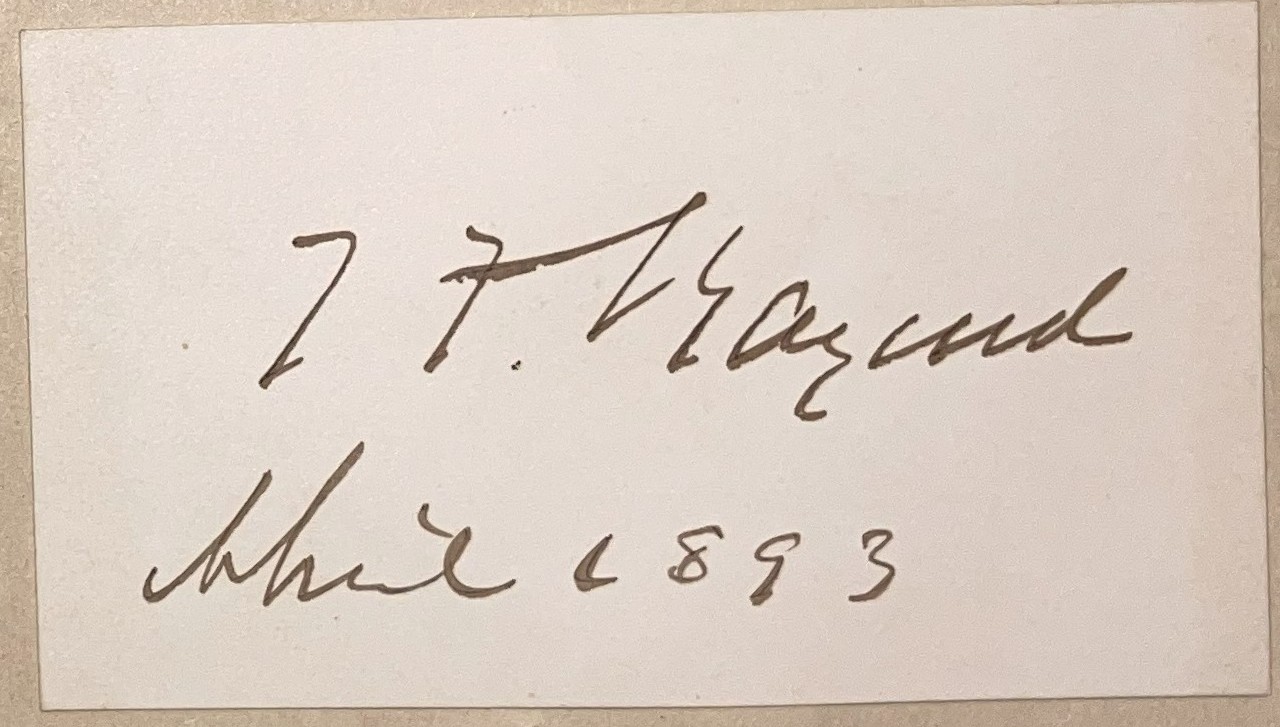 T. F. Bayard
April 1893